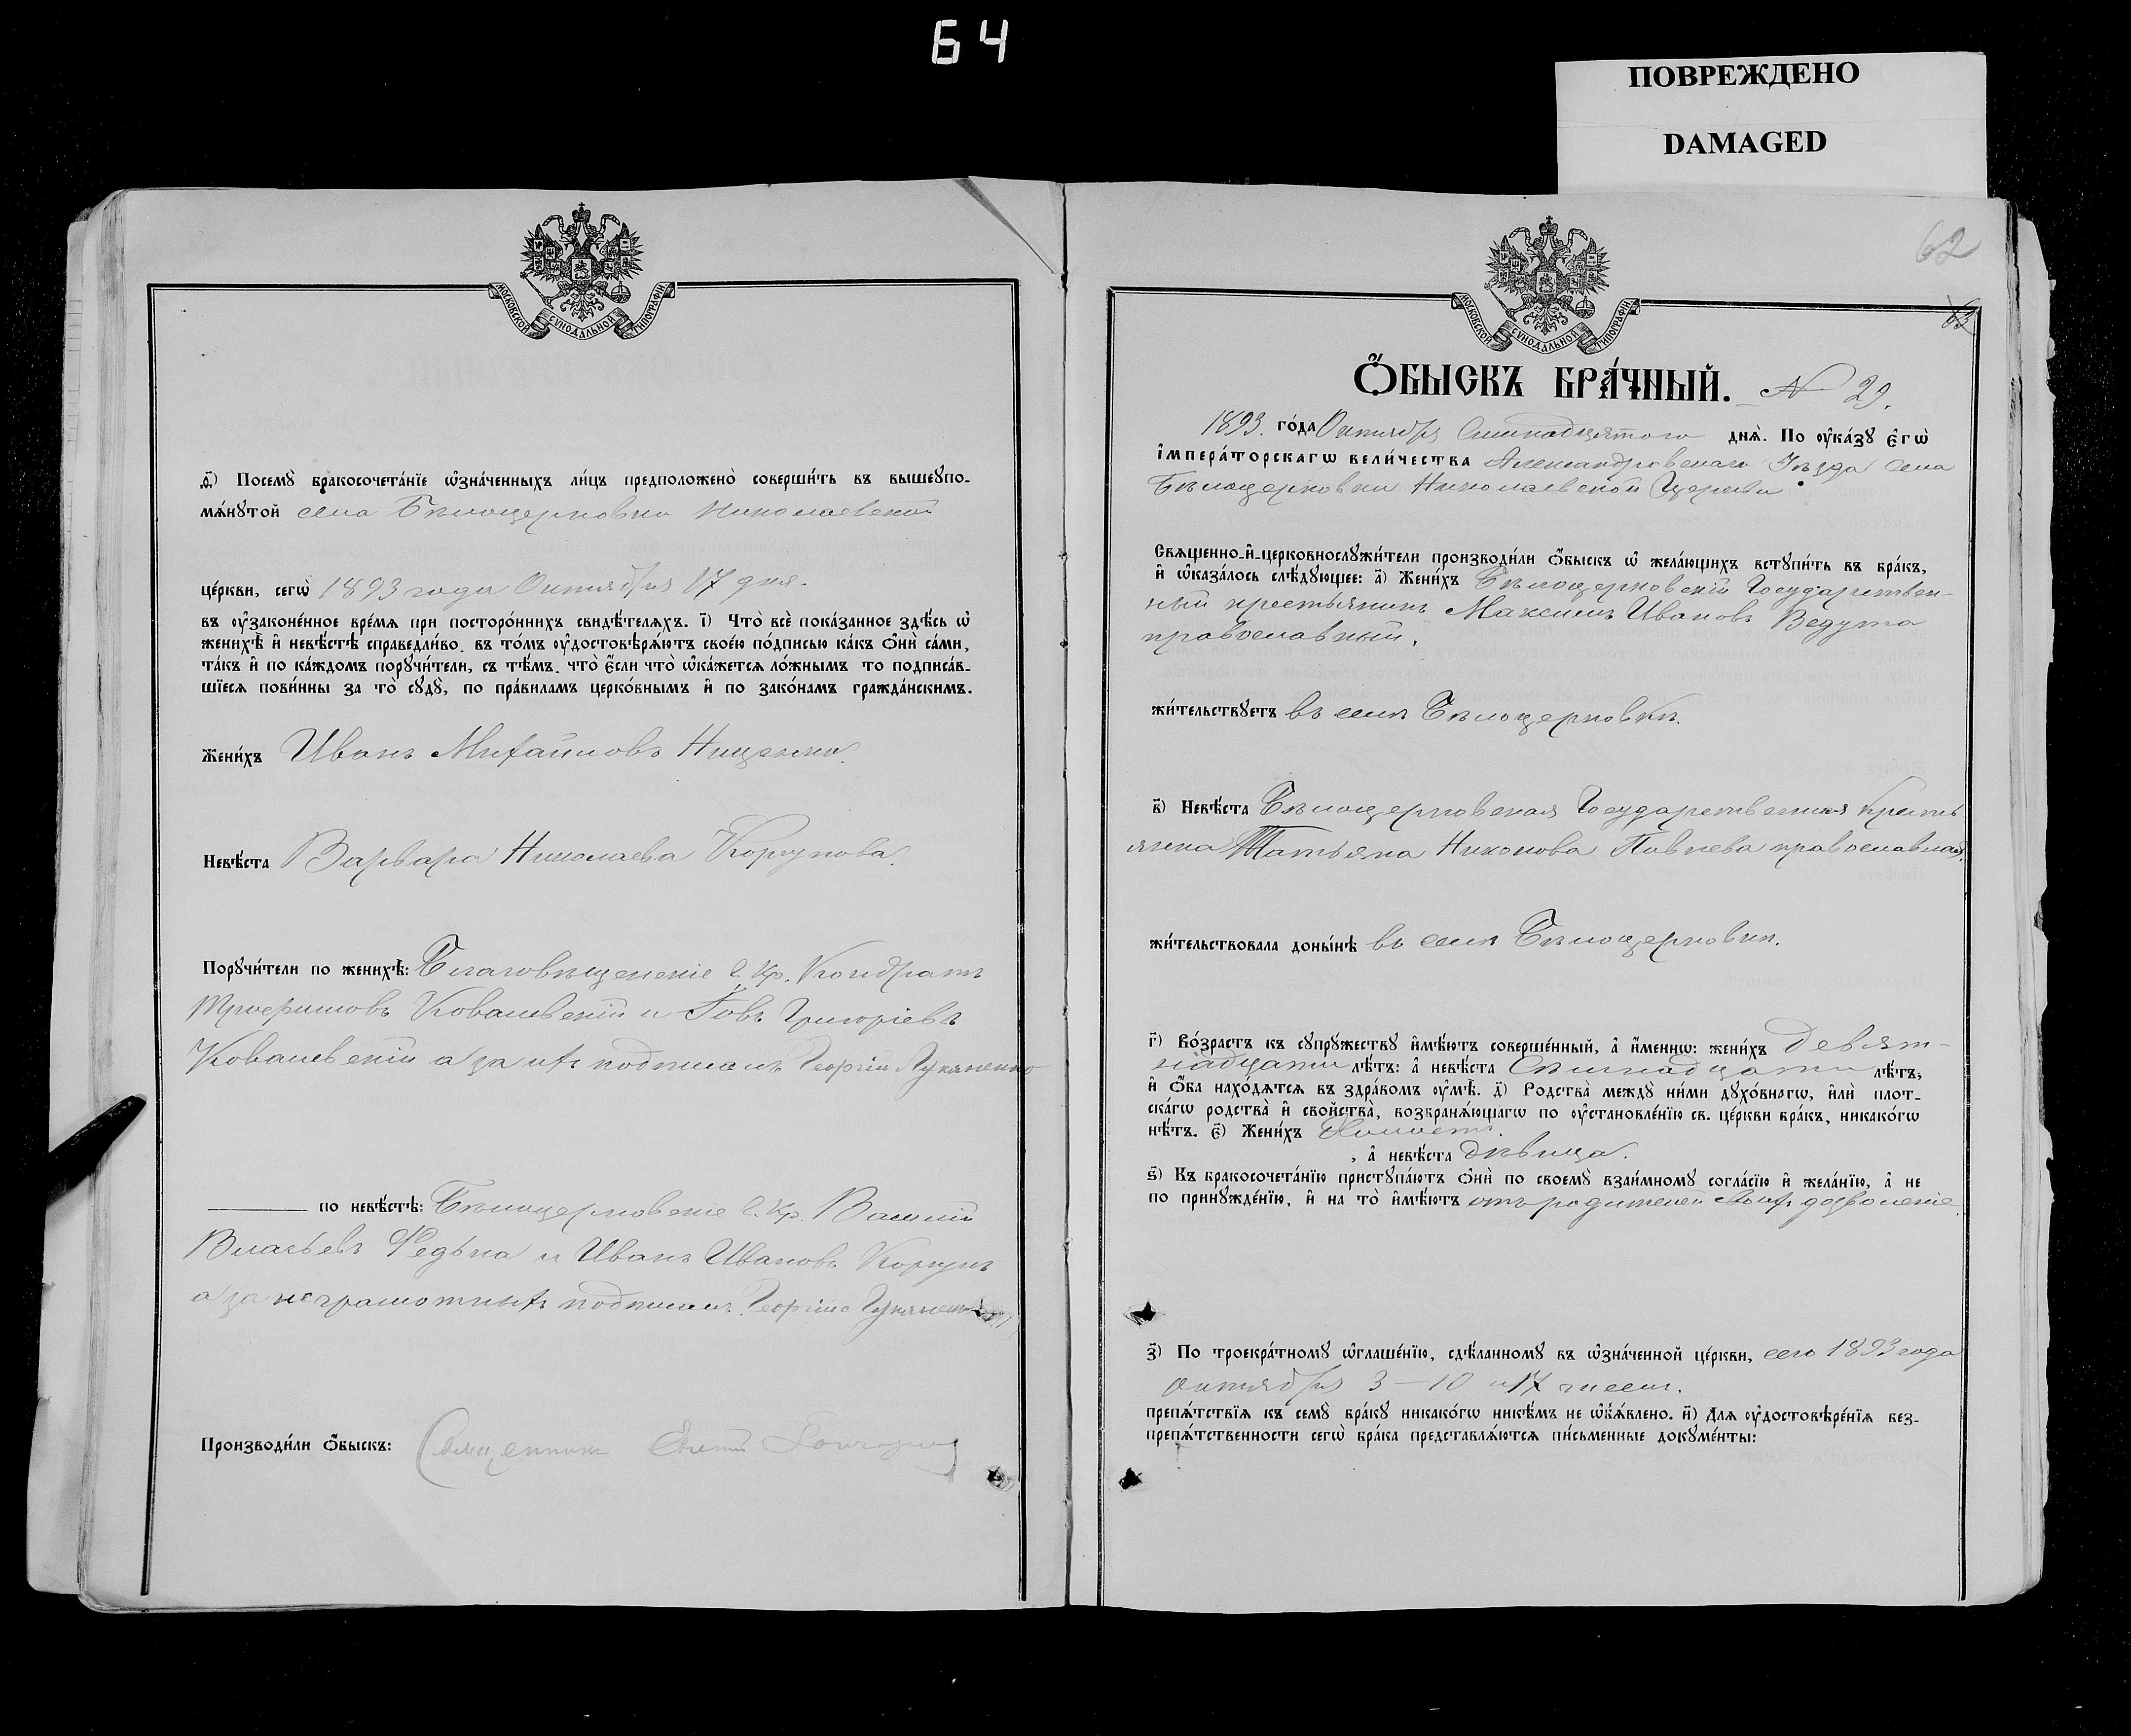 64
ПОВРЕЖДЕНО
DAMAGED
МОСКОВСКОЙ СѴНОДАЛЬНОЙ ТИПОГРАФІИ
д҃і) Посемꙋ̀ бракосочета́нїе ѡ҆зна́ченныхъ ли́цъ предположено̀ соверши́ть въ вышеꙋпо-
мѧ́нꙋтой села Бѣлоцерковки Николаевской
це́ркви, сегѡ̀ 1893 года Октября 17 дня.
въ ᲂу҆законе́нное вре́мѧ при посторо́ннихъ свидѣ́телѧхъ. і҃) Что̀ всѐ пока́занное здѣ́сь ѡ҆
женихѣ̀ и҆ невѣ́стѣ справедли́во, въ то́мъ ᲂу҆достовѣрѧ́ютъ свое́ю по́дписью ка́къ ѻ҆нѝ са́ми,
та́къ и҆ по ка́ждомъ порꙋчи́тели, съ тѣ́мъ, что̀ є҆́сли что̀ ѡ҆ка́жетсѧ ло́жнымъ то подписа́в-
шїесѧ пови́нны за то̀ сꙋдꙋ̀, по пра́виламъ церко́внымъ и҆ по зако́намъ гражда́нскимъ.
Жени́хъ Иванъ Михайловъ Нищенко.
Невѣ́ста Варвара Николаева Коргунова.
Порꙋчи́тели по женихѣ̀: Благовѣщенскіе С. Кр. Кондратъ
Трофимовъ Ковалевскій и Іовъ Григоріевъ
Ковалевскій а за ихъ подписалъ Георгій Лукяненко
по невѣ́стѣ: Бѣлоцерковскіе С. Кр. Василій
Власьевъ Федына и Иванъ Ивановъ Коргунъ
а за неграмотныхъ подписалъ Георгій Лукяненко
Производи́ли ѻ҆́быскъ: Священникъ
62
63
МОСКОВСКОЙ СѴНОДАЛЬНОЙ ТИПОГРАФІИ
Ѻ҆́БЫСКЪ БРА́ЧНЫЙ. № 29.
1893. го́да Октября Семнадцятого днѧ̀. По ᲂу҆ка́зꙋ є҆гѡ̀
і҆мпера́торскагѡ вели́чества Александровскаго Уѣзда села
Бѣлоцерковки Николаевской Церкви
Свѧще́нно-и҆-церковнослꙋжи́тели производи́ли ѻ҆́быскъ ѡ҆ жела́ющихъ встꙋпи́ть въ бра́къ,
и҆ ѡ҆каза́лось слѣ́дꙋющее: а҃) Жени́хъ Бѣлоцерковскій Государствен-
ный крестьянинъ Максимъ Ивановъ Ведута
православный.
жи́тельствꙋетъ въ селѣ Бѣлоцерковкѣ.
в҃) Невѣ́ста Бѣлоцерковская Государственная Кресть
янка Татьяна Никонова Павлева православная.
жи́тельствовала доны́нѣ въ селѣ Бѣлоцерковкѣ.
г҃) Во́зрастъ къ сꙋпрꙋ́жествꙋ и҆мѣ́ютъ соверше́нный, а҆ и҆́меннѡ: жени́хъ Девят-
надцати лѣ́тъ: а҆ невѣ́ста Семнадцати лѣ́тъ,
и҆ ѻ҆́ба нахо́дѧтсѧ въ здра́вомъ ᲂу҆мѣ̀. д҃) Родства̀ междꙋ̀ ни́ми дꙋхо́внагѡ, и҆лѝ плот-
ска́гѡ родства̀ и҆ сво́йства̀, возбранѧ́ющагѡ по ᲂу҆становле́нїю св. це́ркви бра́къ, никако́гѡ
нѣ́тъ. є҃) Жени́хъ Холостъ.
, а҆ невѣ́ста дѣвица.
ѕ҃) Къ бракосочета́нїю пристꙋпа́ютъ ѻ҆нѝ по своемꙋ̀ взаи́мномꙋ согла́сїю и҆ жела́нїю, а҆ не
по принꙋжде́нїю, и҆ на то̀ и҆мѣ́ютъ отъ родителей своихъ дозволеніе.
з҃) По троекра́тномꙋ ѡ҆глаше́нїю, сдѣ́ланномꙋ въ ѡ҆зна́ченной це́ркви, сего 1893 года
октября 3–10 и 17 числъ.
препѧ́тствїѧ къ семꙋ̀ бра́кꙋ никако́гѡ никѣ́мъ не ѡ҆б̾ѧ́влено. и҃) Длѧ ᲂу҆достовѣре́нїѧ без-
препѧ́тственности сегѡ̀ бра́ка представлѧ́ютсѧ пи́сьменные докꙋме́нты: